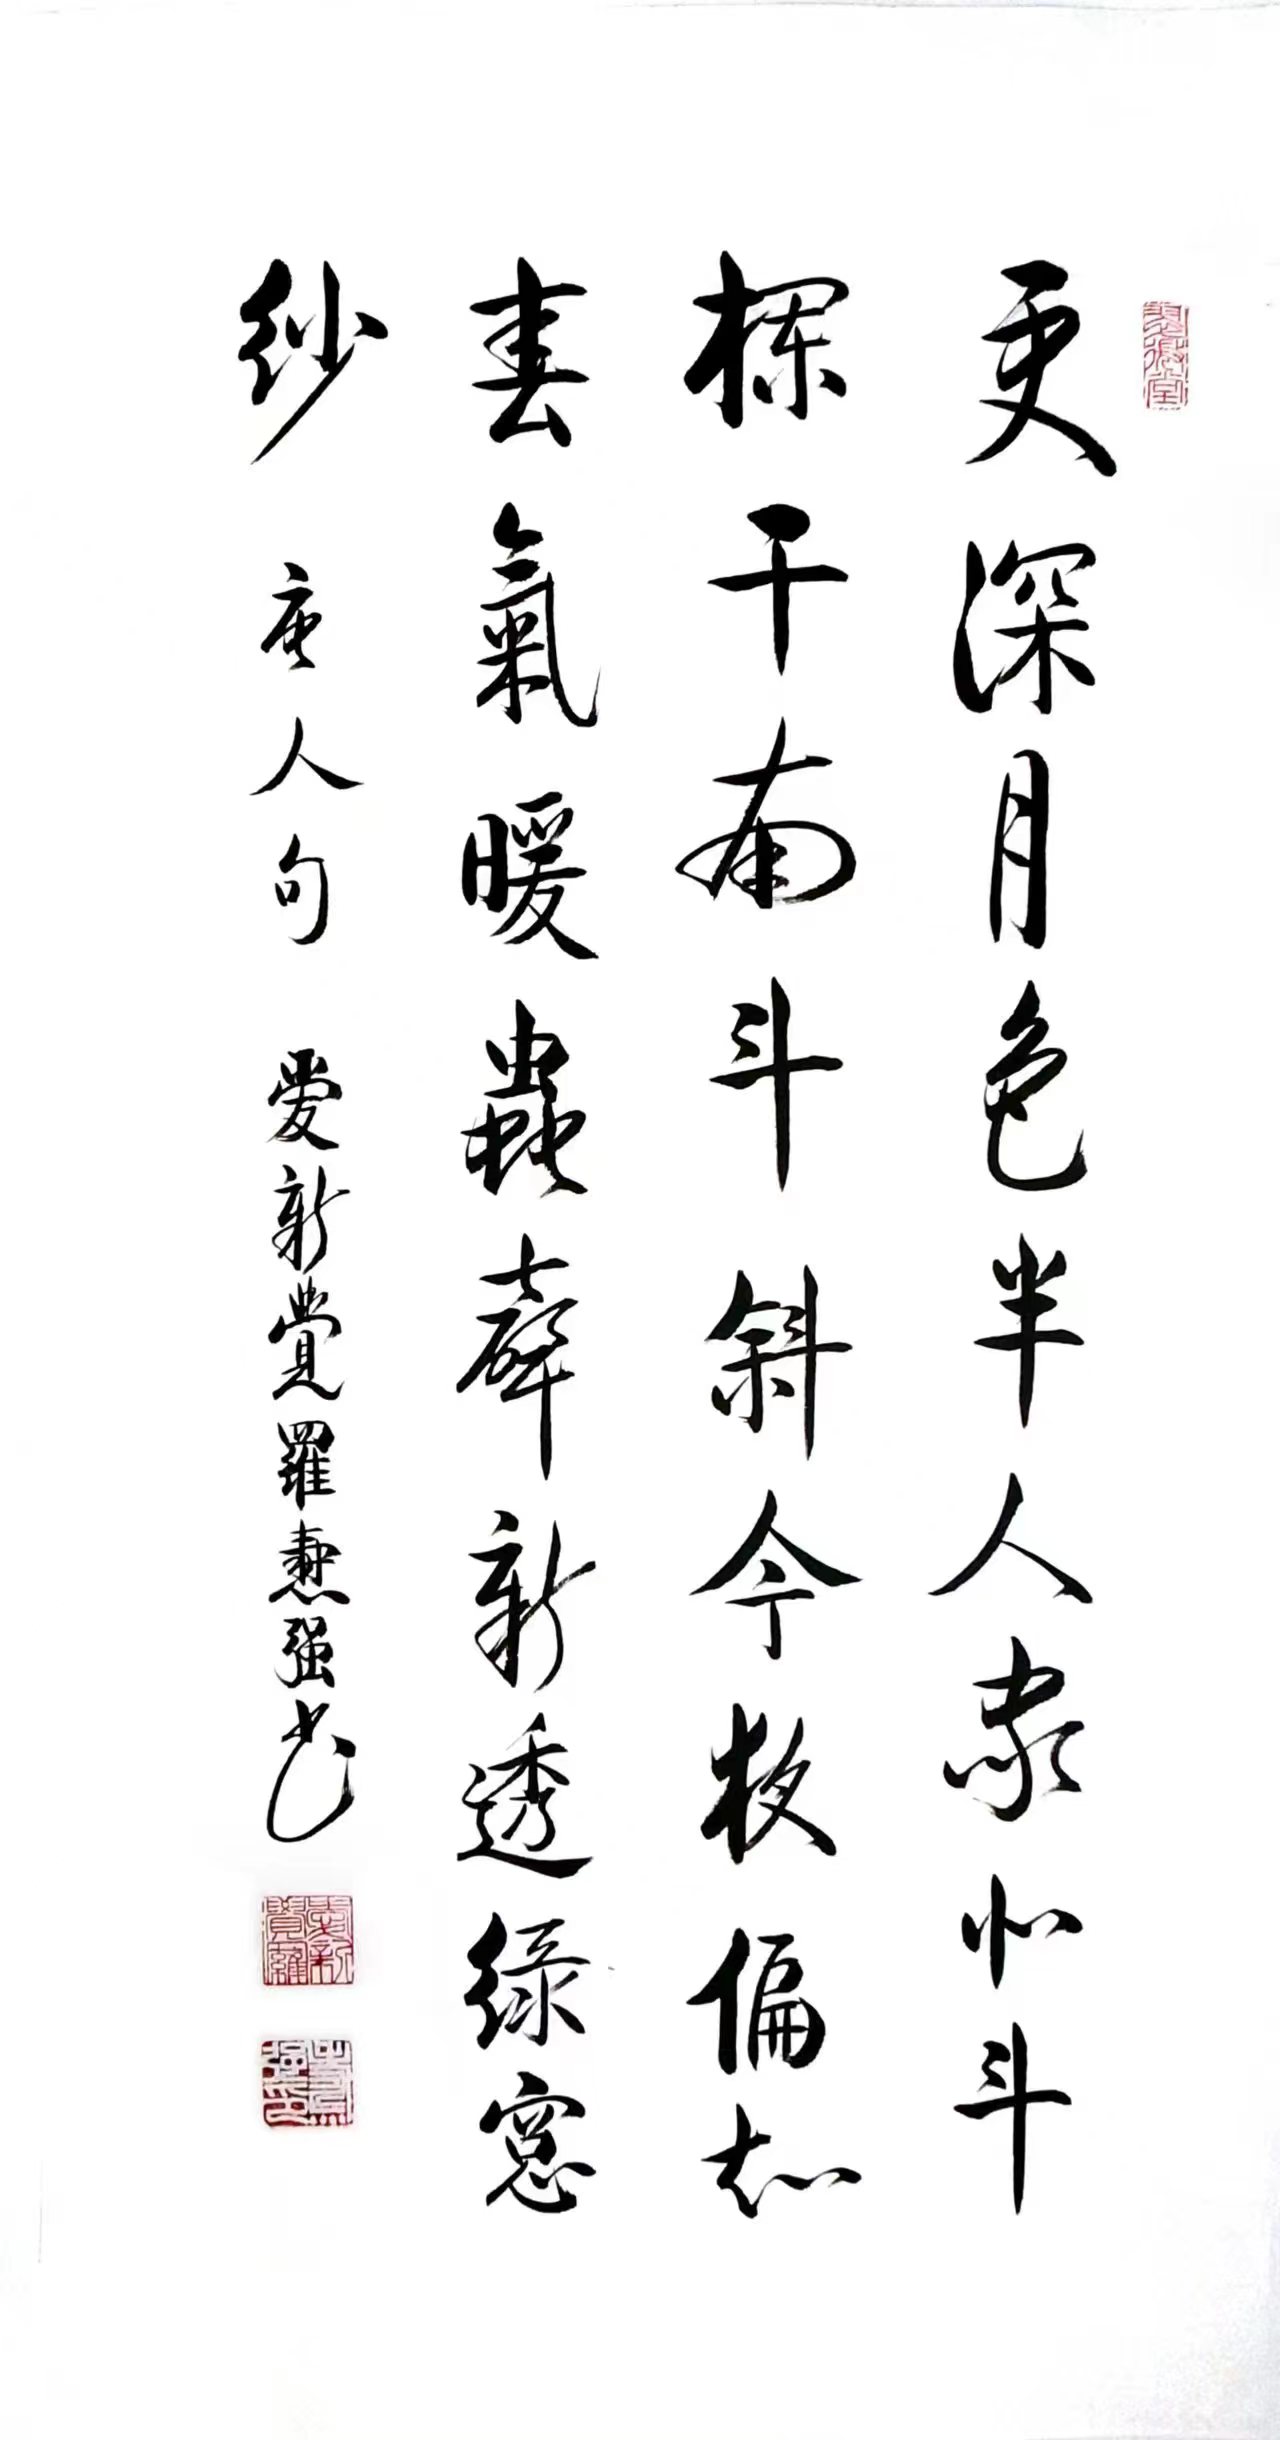 更深月色半人家北斗
欄干南斗斜今夜偏知
春氣暖蟲聲新透綠窻
紗 唐人句 愛新覺羅 强書
愛新覺羅